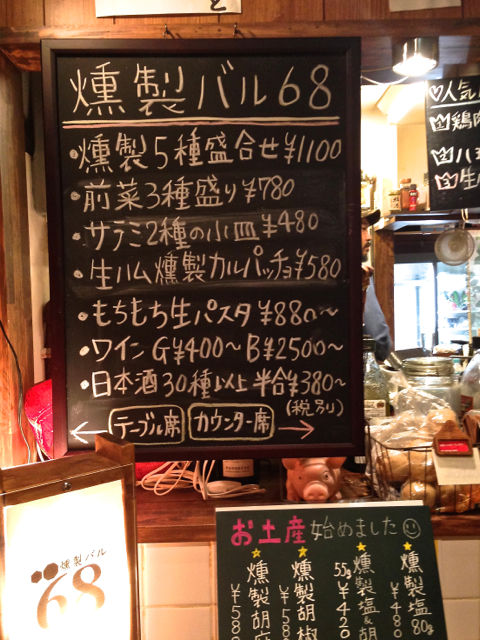 燻製バル68
・燻製5種盛合せ¥1100
・前菜3種盛り¥780
・サラミ2種の小皿¥480
・生ハム燻製カルパッチョ¥580
・もちもち生パスタ¥880~
・ワインG¥400~B¥2500~
・日本酒30種以上半合¥380~
(税別)
←テーブル席 カウンター席→
人気
鶏肉
ハ
生
燻製バル
68
お土産始めました
燻製塩80g ¥48
燻製塩&胡 55g ¥42
燻製胡椒 ¥58
燻製胡麻 ¥58